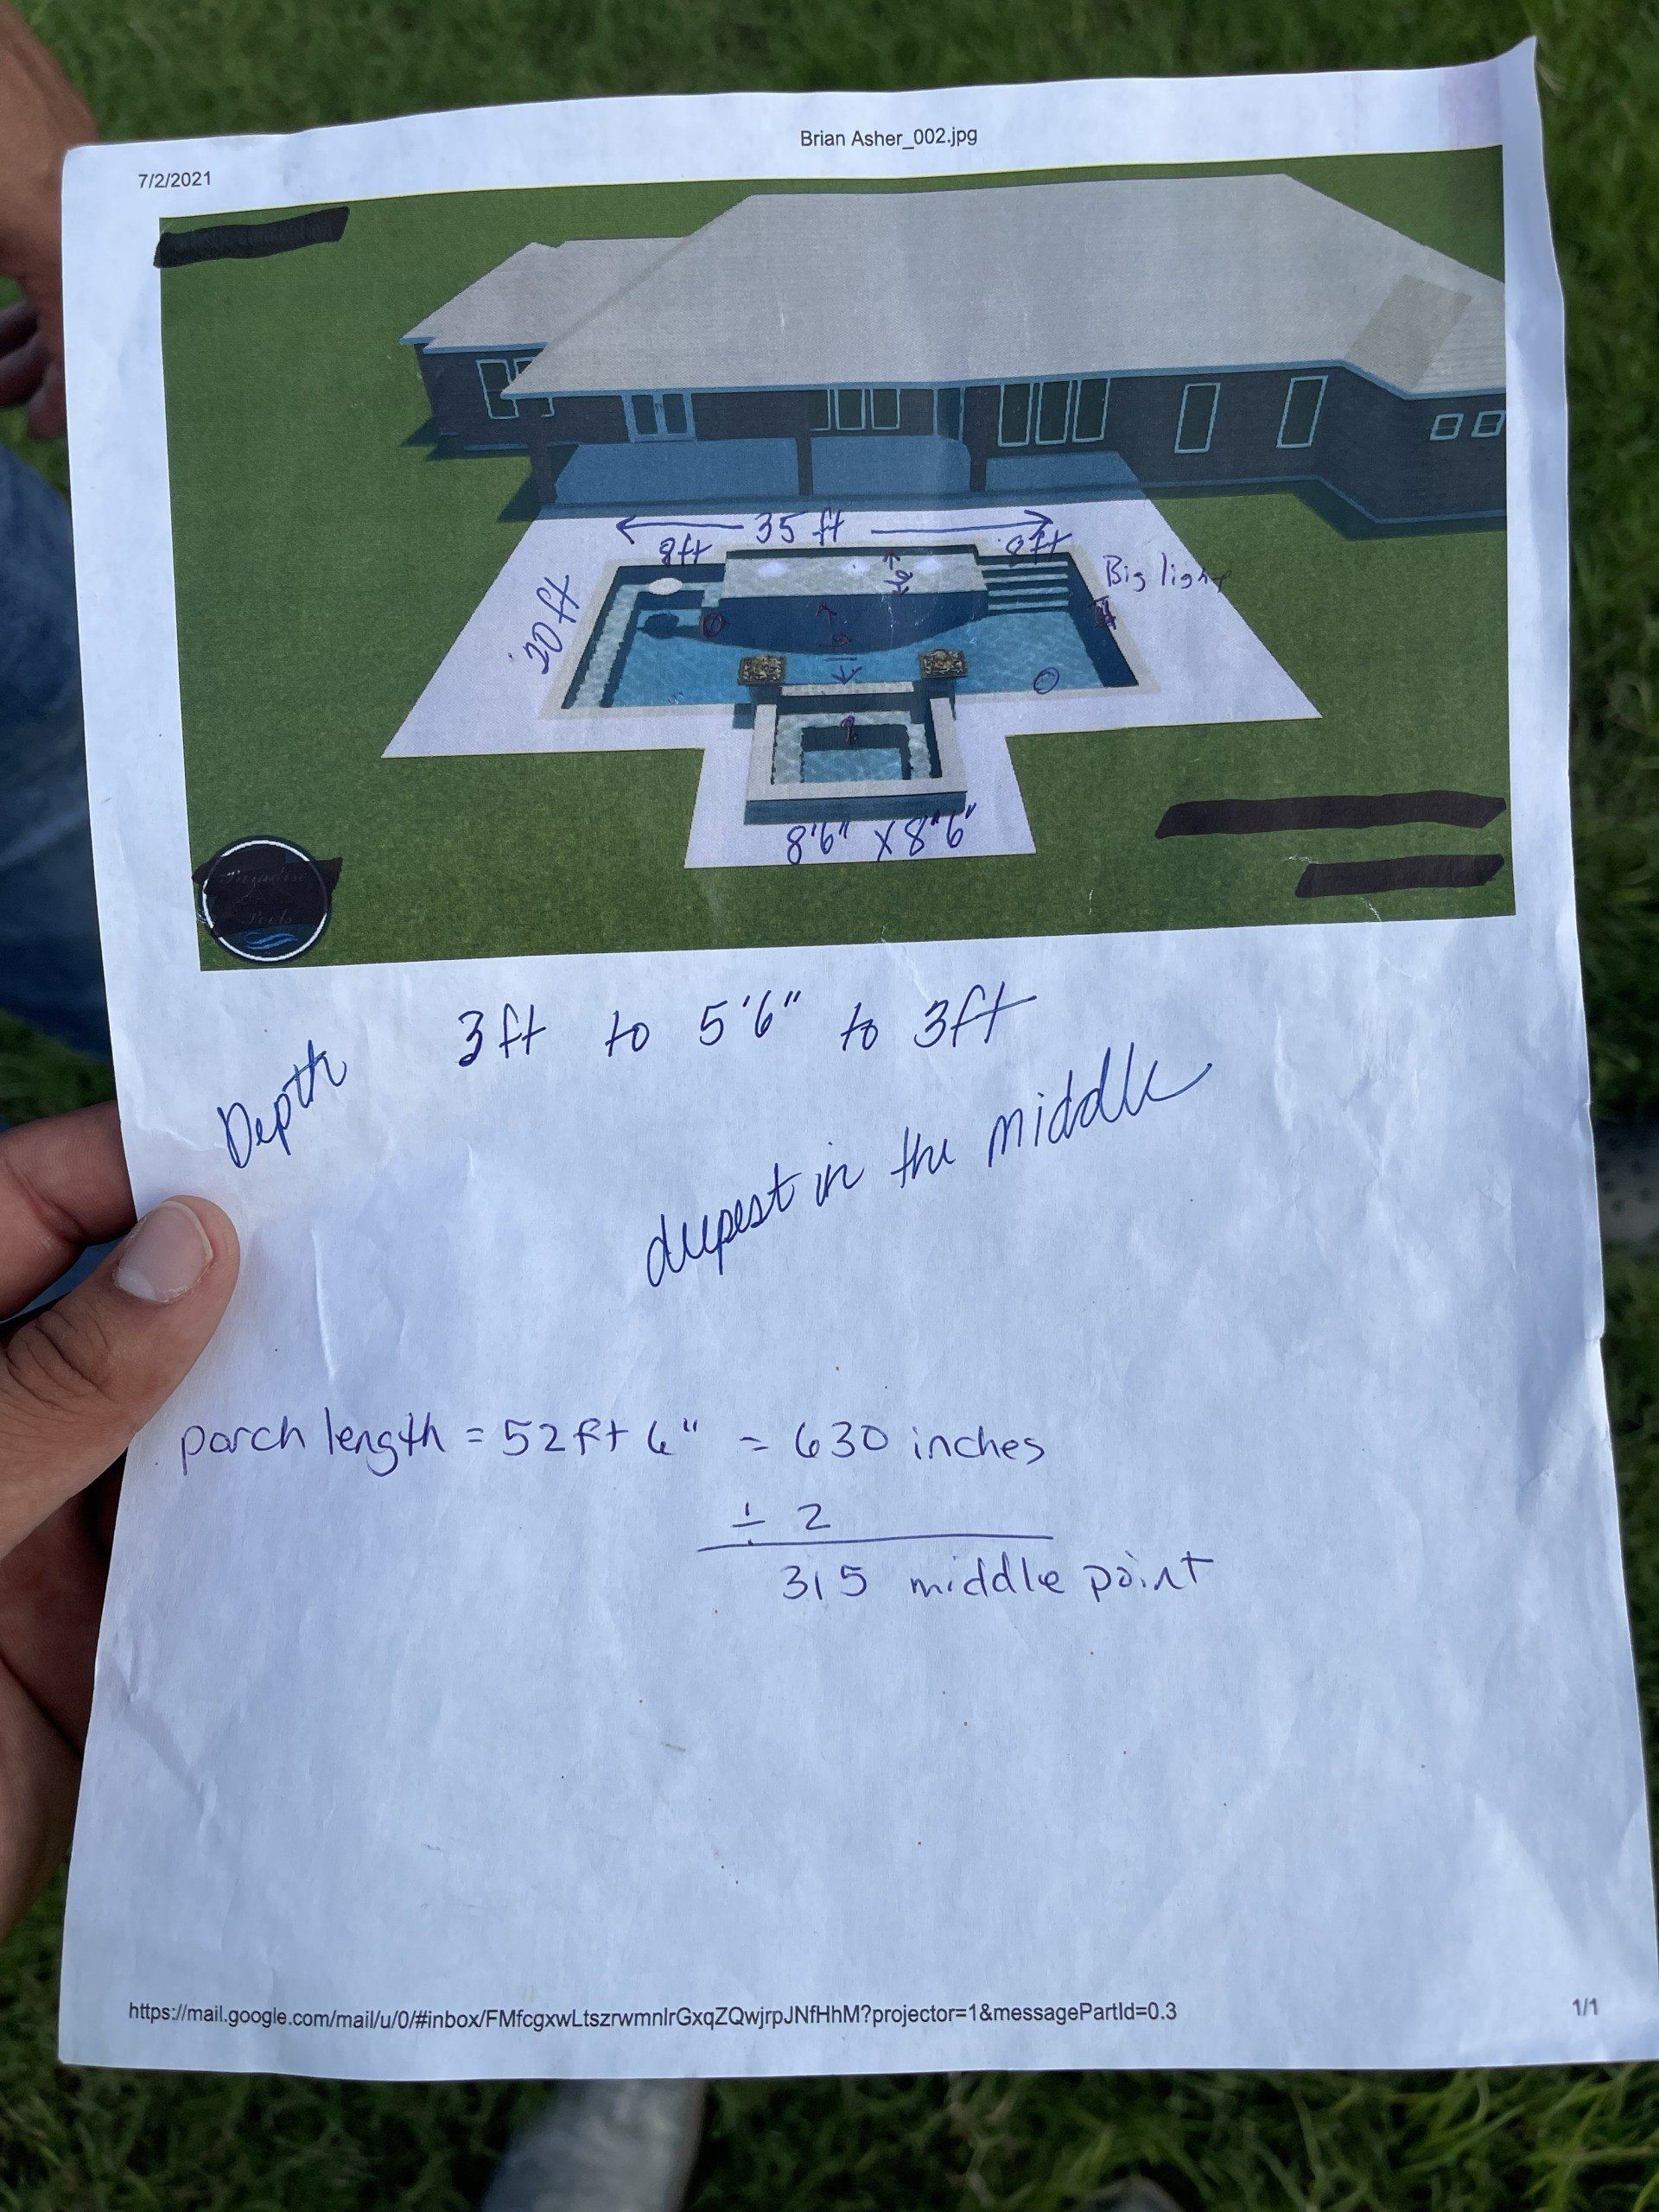 Brian Asher_002.jpg
7/2/2021
35 ft
8ft
8ft
Big light
20 ft
8'6" x 8"6"
Paradise
Pools
Depth 3ft to 5'6" to 3ft
deepest in the middle
porch length = 52ft 6" = 630 inches
÷ 2
315 middle point
https://mail.google.com/mail/u/0/#inbox/FMfcgxwLtszrwmnlrGxqZQwjrpJNfHhM?projector=1&messagePartId=0.3
1/1